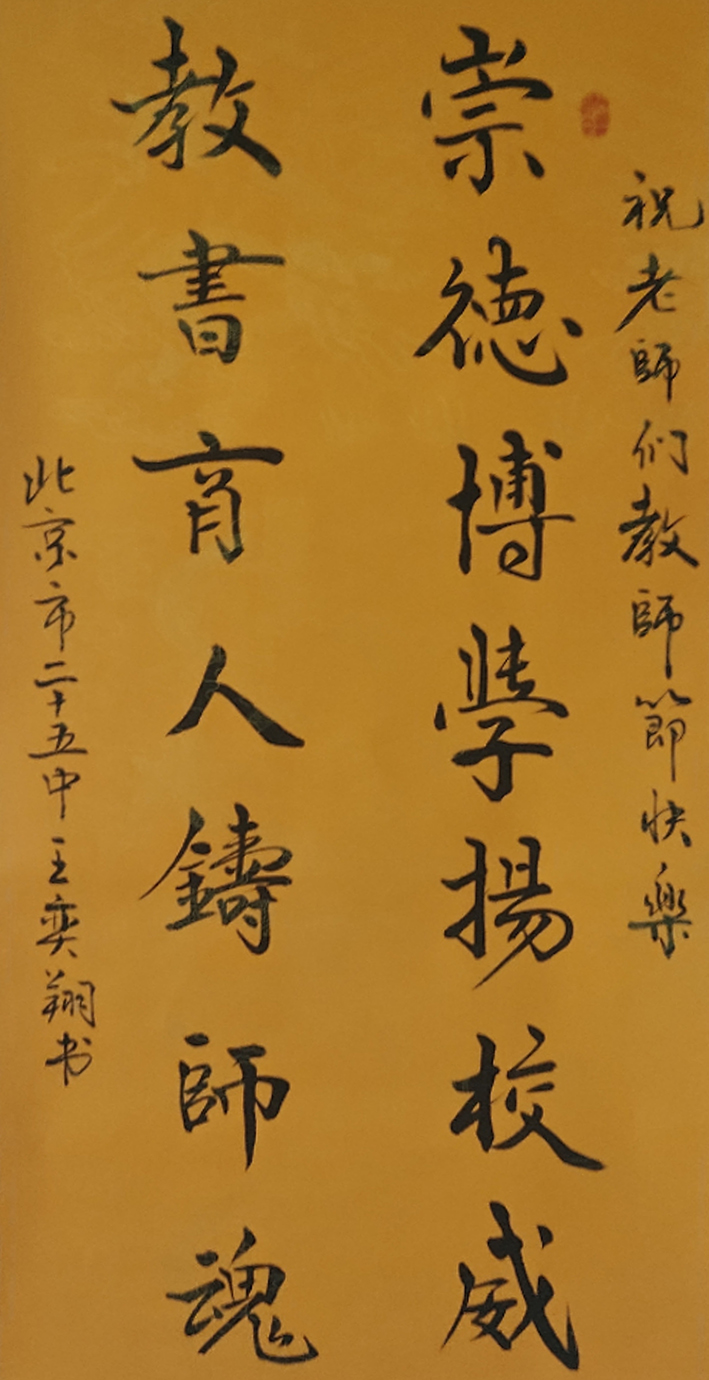 祝老師们教師節快樂
崇德博學揚校威
教書育人鑄師魂
北京市二十五中王奕翔书